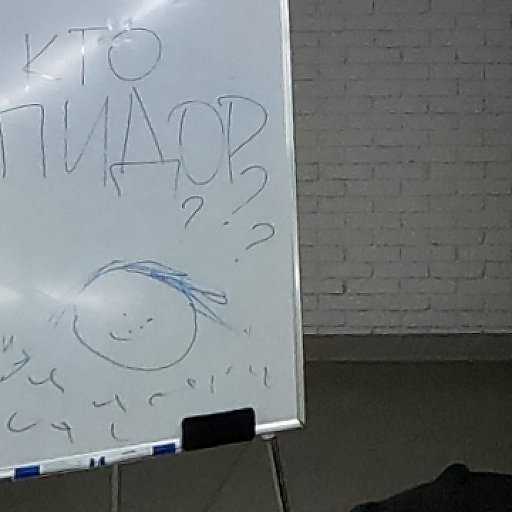 КТО
ПИДОР
? ?
?